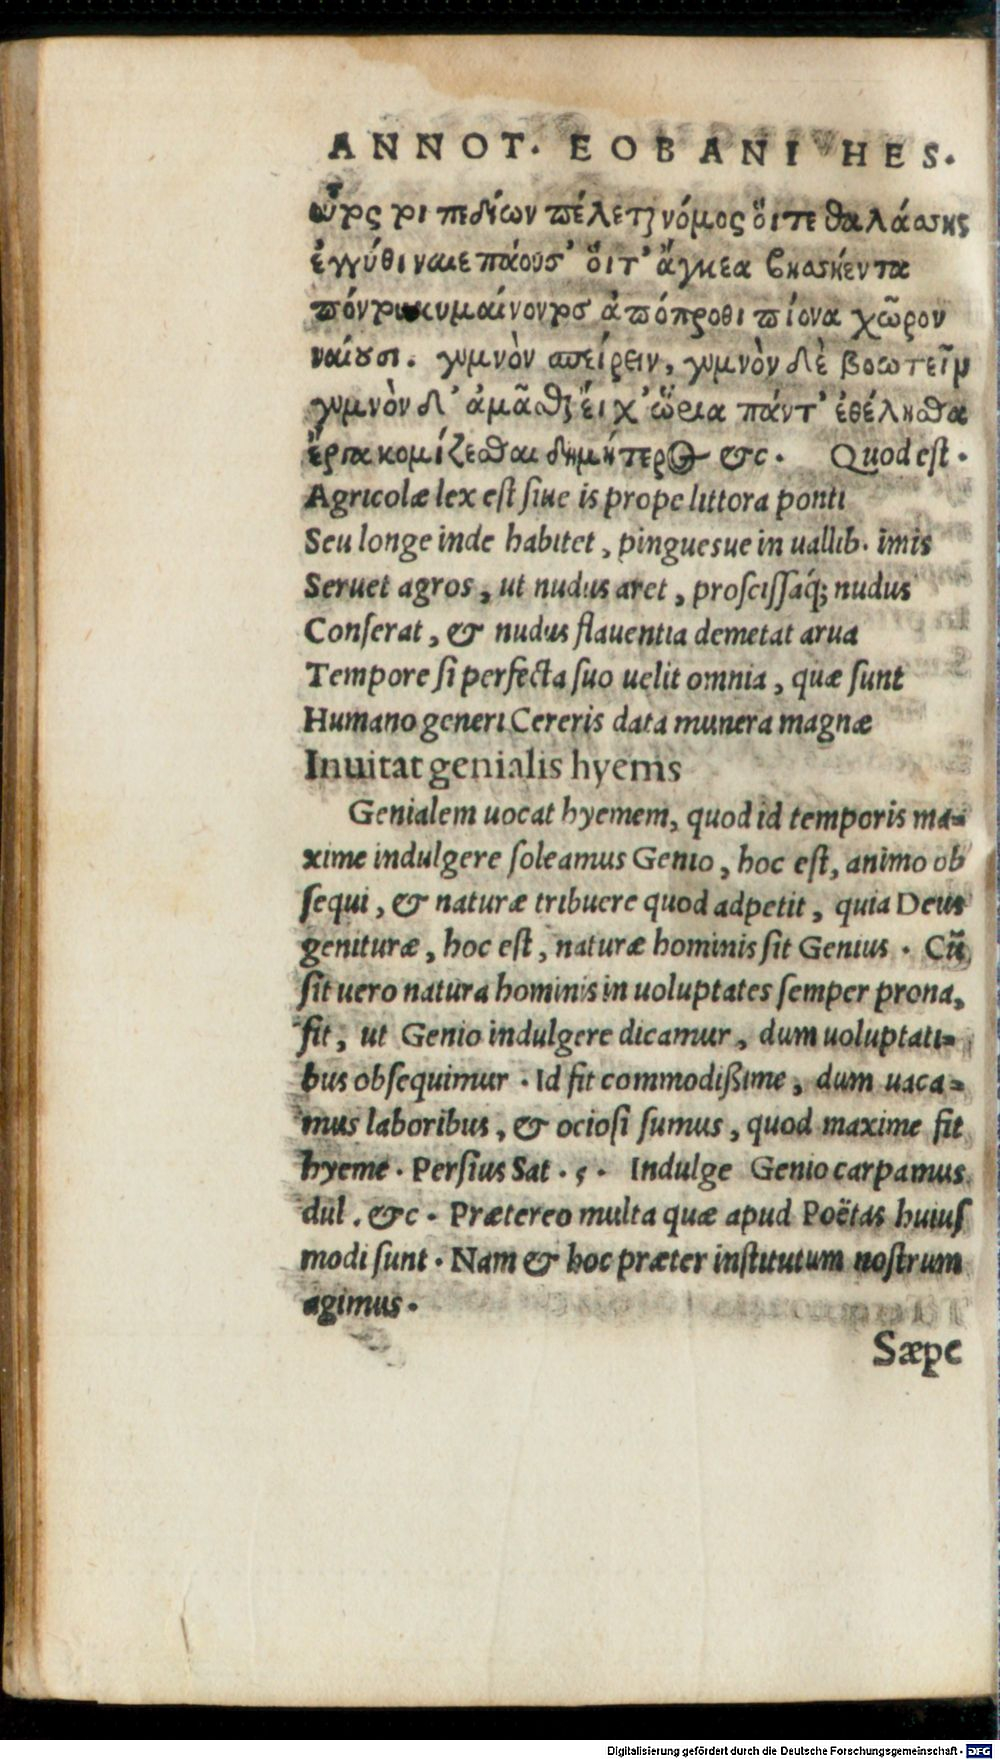 ANNOT. EOBANI HES.
οὗτός τοι πεδίων πέλεται νόμος οἵ τε θαλάσσης
ἐγγύθι ναιετάουσ' οἵ τ' ἄγκεα βησσήεντα
πόντου κυμαίνοντος ἀπόπροθι πίονα χῶρον
ναίουσι. γυμνὸν σπείρειν, γυμνὸν δὲ βοωτεῖν
γυμνὸν δ' ἀμᾶσθαι εἴ χ' ὥρια πάντ' ἐθέλησθα
ἔργα κομίζεσθαι δημήτερος &c. Quod est.
Agricolæ lex est siue is prope littora ponti
Seu longe inde habitet, pinguesue in uallib. imis
Seruet agros, ut nudus aret, proscissáq; nudus
Conserat, & nudus flauentia demetat arua
Tempore si perfecta suo uelit omnia, quæ sunt
Humano generi Cereris data munera magnæ
Inuitat genialis hyems
Genialem uocat hyemem, quod id temporis ma-
xime indulgere soleamus Genio, hoc est, animo ob
sequi, & naturæ tribuere quod adpetit, quia Deus
genituræ, hoc est, naturæ hominis sit Genius. Cũ
sit uero natura hominis in uoluptates semper prona,
fit, ut Genio indulgere dicamur, dum uoluptati-
bus obsequimur. Id fit commodißime, dum uaca-
mus laboribus, & ociosi sumus, quod maxime fit
hyeme. Persius Sat. 5. Indulge Genio carpamus
dul. &c. Prætereo multa quæ apud Poëtas huius
modi sunt. Nam & hoc præter institutum nostrum
agimus.
Sæpe
Digitalisierung gefördert durch die Deutsche Forschungsgemeinschaft - DFG